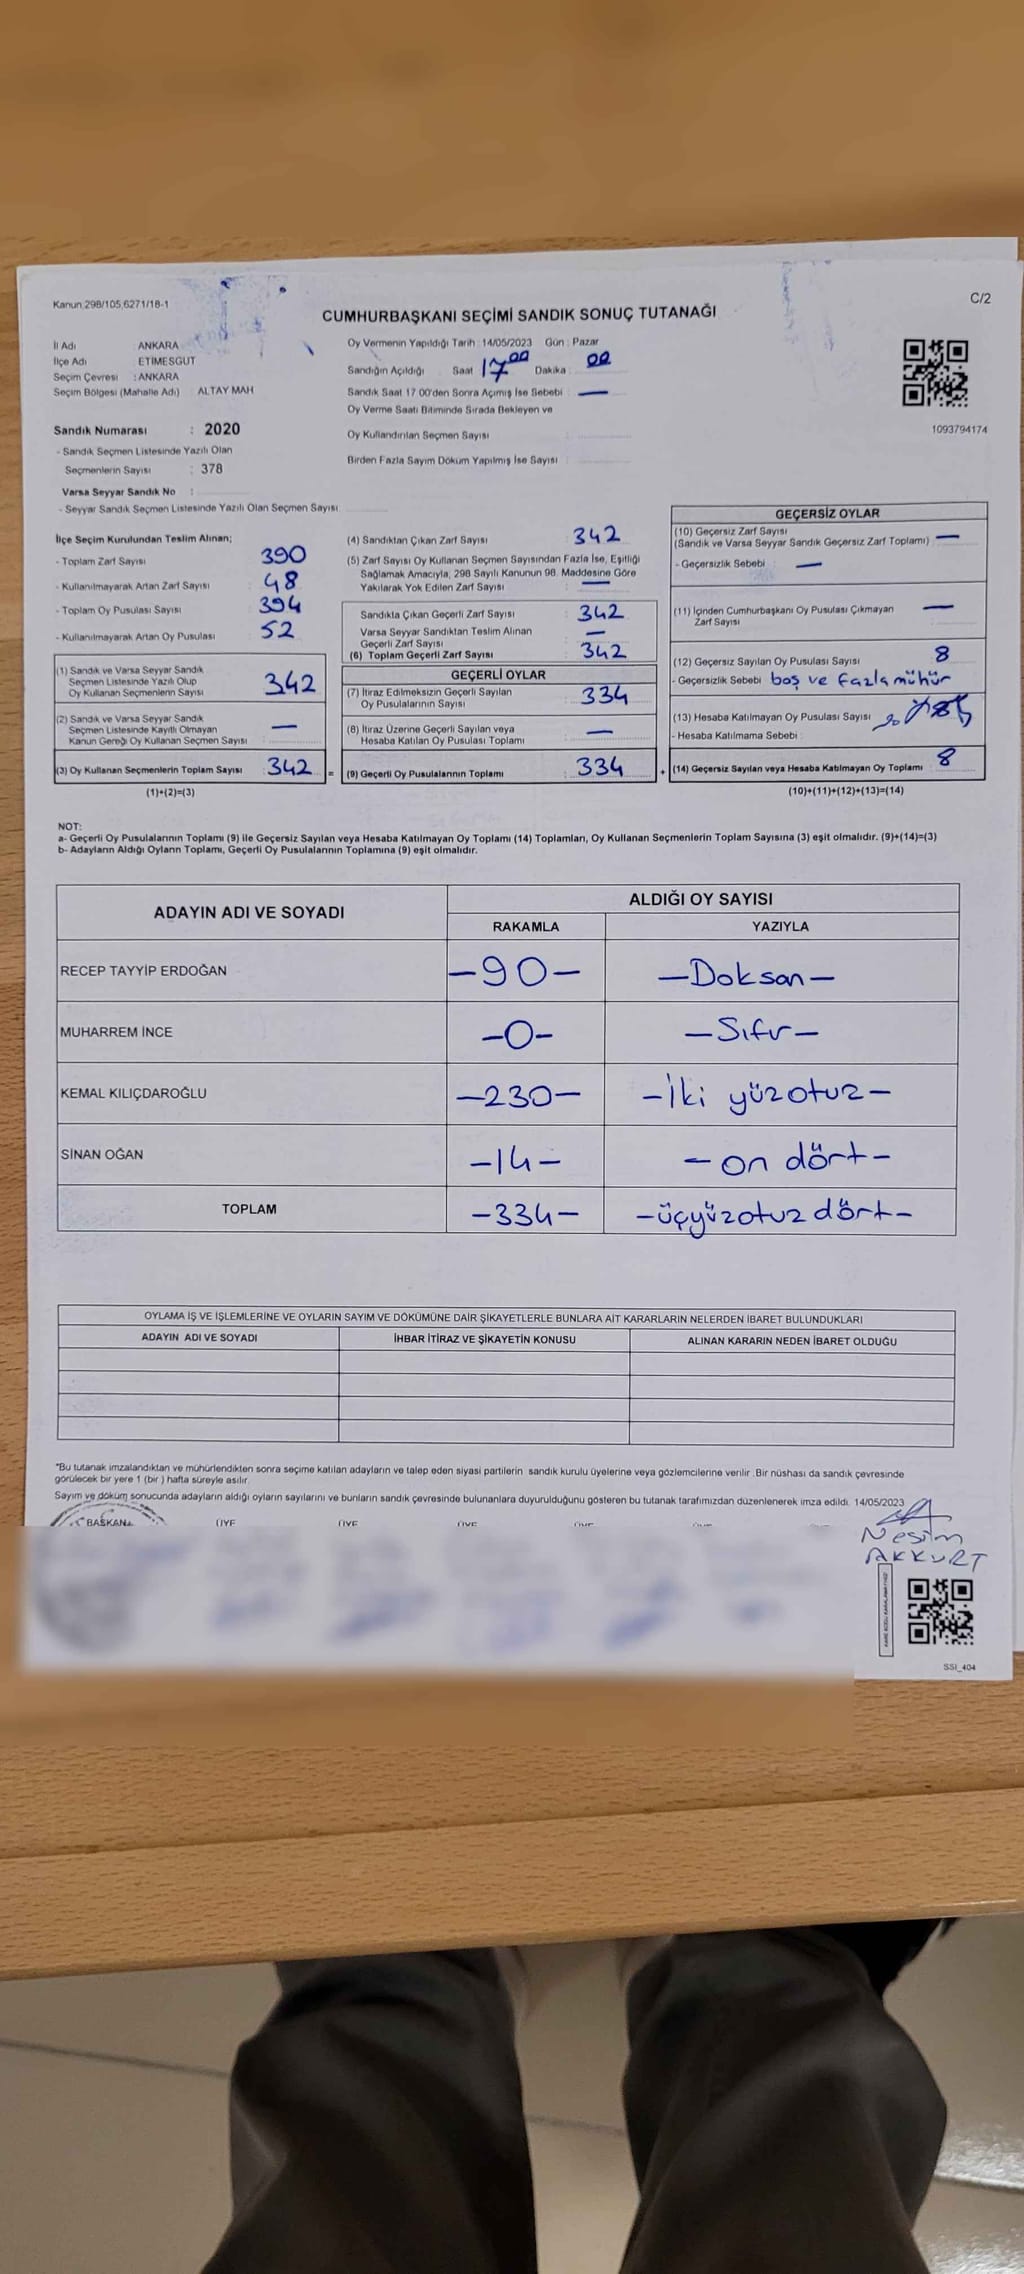 Kanun 298/105,6271/18-1
C/2
CUMHURBAŞKANI SEÇİMİ SANDIK SONUÇ TUTANAĞI
İl Adı ANKARA
İlçe Adı ETİMESGUT
Seçim Çevresi : ANKARA
Seçim Bölgesi (Mahalle Adı) : ALTAY MAH
Sandık Numarası : 2020
- Sandık Seçmen Listesinde Yazılı Olan
Seçmenlerin Sayısı : 378
Varsa Seyyar Sandık No :
- Seyyar Sandık Seçmen Listesinde Yazılı Olan Seçmen Sayısı
Oy Vermenin Yapıldığı Tarih : 14/05/2023 Gün : Pazar
Sandığın Açıldığı Saat 17 00 Dakika : 00
Sandık Saat 17 00'den Sonra Açımış İse Sebebi : —
Oy Verme Saati Bitiminde Sırada Bekleyen ve
Oy Kullandırılan Seçmen Sayısı :
Birden Fazla Sayım Döküm Yapılmış İse Sayısı :
1093794174
İlçe Seçim Kurulundan Teslim Alınan;
- Toplam Zarf Sayısı : 390
- Kullanılmayarak Artan Zarf Sayısı : 48
- Toplam Oy Pusulası Sayısı : 394
- Kullanılmayarak Artan Oy Pusulası : 52
(1) Sandık ve Varsa Seyyar Sandık
Seçmen Listesinde Yazılı Olup
Oy Kullanan Seçmenlerin Sayısı 342
(2) Sandık ve Varsa Seyyar Sandık
Seçmen Listesinde Kayıtlı Olmayan
Kanun Gereği Oy Kullanan Seçmen Sayısı : —
(3) Oy Kullanan Seçmenlerin Toplam Sayısı : 342 =
(1)+(2)=(3)
(4) Sandıktan Çıkan Zarf Sayısı : 342
(5) Zarf Sayısı Oy Kullanan Seçmen Sayısından Fazla İse, Eşitliği
Sağlamak Amacıyla, 298 Sayılı Kanunun 98. Maddesine Göre
Yakılarak Yok Edilen Zarf Sayısı : —
Sandıkta Çıkan Geçerli Zarf Sayısı : 342
Varsa Seyyar Sandıktan Teslim Alınan
Geçerli Zarf Sayısı : —
(6) Toplam Geçerli Zarf Sayısı : 342
GEÇERLİ OYLAR
(7) İtiraz Edilmeksizin Geçerli Sayılan
Oy Pusulalarının Sayısı : 334
(8) İtiraz Üzerine Geçerli Sayılan veya
Hesaba Katılan Oy Pusulası Toplamı : —
(9) Geçerli Oy Pusulalarının Toplamı : 334 +
GEÇERSİZ OYLAR
(10) Geçersiz Zarf Sayısı
(Sandık ve Varsa Seyyar Sandık Geçersiz Zarf Toplamı) : —
- Geçersizlik Sebebi : —
(11) İçinden Cumhurbaşkanı Oy Pusulası Çıkmayan
Zarf Sayısı : —
(12) Geçersiz Sayılan Oy Pusulası Sayısı 8
- Geçersizlik Sebebi boş ve fazla mühür
(13) Hesaba Katılmayan Oy Pusulası Sayısı
- Hesaba Katılmama Sebebi :
(14) Geçersiz Sayılan veya Hesaba Katılmayan Oy Toplamı : 8
(10)+(11)+(12)+(13)=(14)
NOT:
a- Geçerli Oy Pusulalarının Toplamı (9) ile Geçersiz Sayılan veya Hesaba Katılmayan Oy Toplamı (14) Toplamları, Oy Kullanan Seçmenlerin Toplam Sayısına (3) eşit olmalıdır. (9)+(14)=(3)
b- Adayların Aldığı Oyların Toplamı, Geçerli Oy Pusulalarının Toplamına (9) eşit olmalıdır.
ADAYIN ADI VE SOYADI ALDIĞI OY SAYISI
RAKAMLA YAZIYLA
RECEP TAYYİP ERDOĞAN -90- -Doksan-
MUHARREM İNCE -0- -Sıfır-
KEMAL KILIÇDAROĞLU -230- -İki yüzotuz-
SİNAN OĞAN -14- -on dört-
TOPLAM -334- -üçyüzotuz dört-
OYLAMA İŞ VE İŞLEMLERİNE VE OYLARIN SAYIM VE DÖKÜMÜNE DAİR ŞİKAYETLERLE BUNLARA AİT KARARLARIN NELERDEN İBARET BULUNDUKLARI
ADAYIN ADI VE SOYADI İHBAR İTİRAZ VE ŞİKAYETİN KONUSU ALINAN KARARIN NEDEN İBARET OLDUĞU
*Bu tutanak imzalandıktan ve mühürlendikten sonra seçime katılan adayların ve talep eden siyasi partilerin sandık kurulu üyelerine veya gözlemcilerine verilir .Bir nüshası da sandık çevresinde
görülecek bir yere 1 (bir ) hafta süreyle asılır.
Sayım ve döküm sonucunda adayların aldığı oyların sayılarını ve bunların sandık çevresinde bulunanlara duyurulduğunu gösteren bu tutanak tarafımızdan düzenlenerek imza edildi. 14/05/2023
BAŞKAN ÜYE ÜYE ÜYE
Nesim
AKKURT
SSI_404